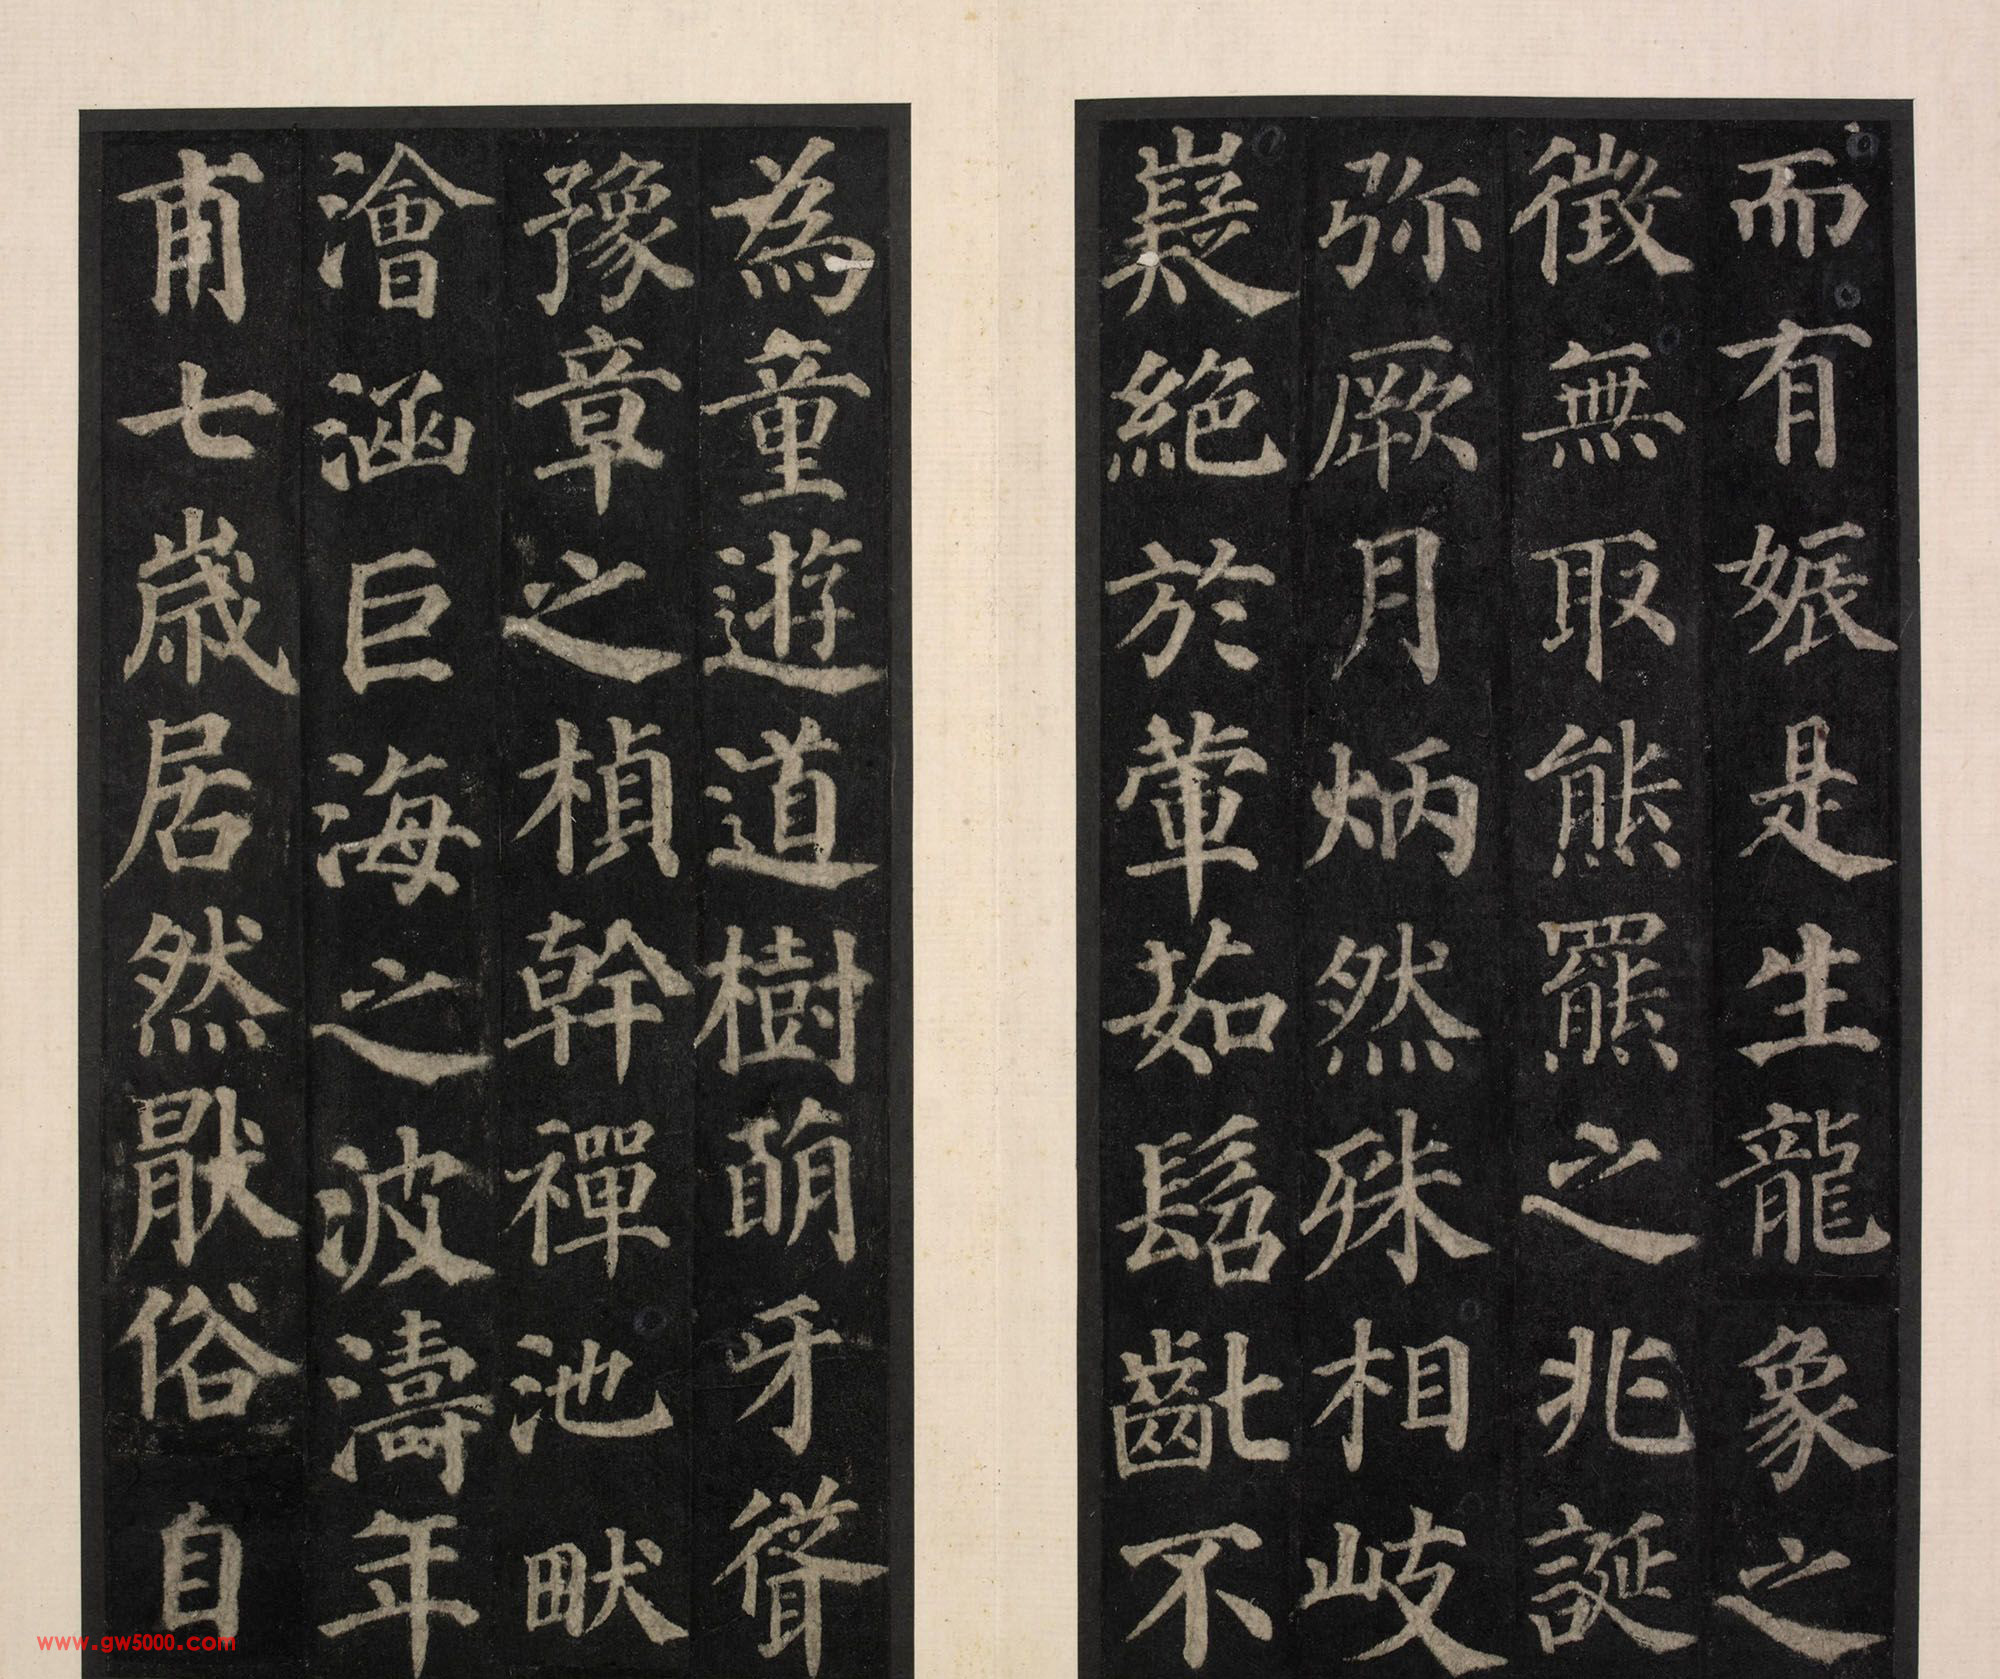 而有娠是生龍象之
徵無取熊羆之兆誕
弥厥月炳然殊相岐
嶷絕於葷茹髫齔不
為童遊道樹萌牙聳
豫章之楨幹禪池畎
澮涵巨海之波濤年
甫七歲居然猒俗自
www.gw5000.com